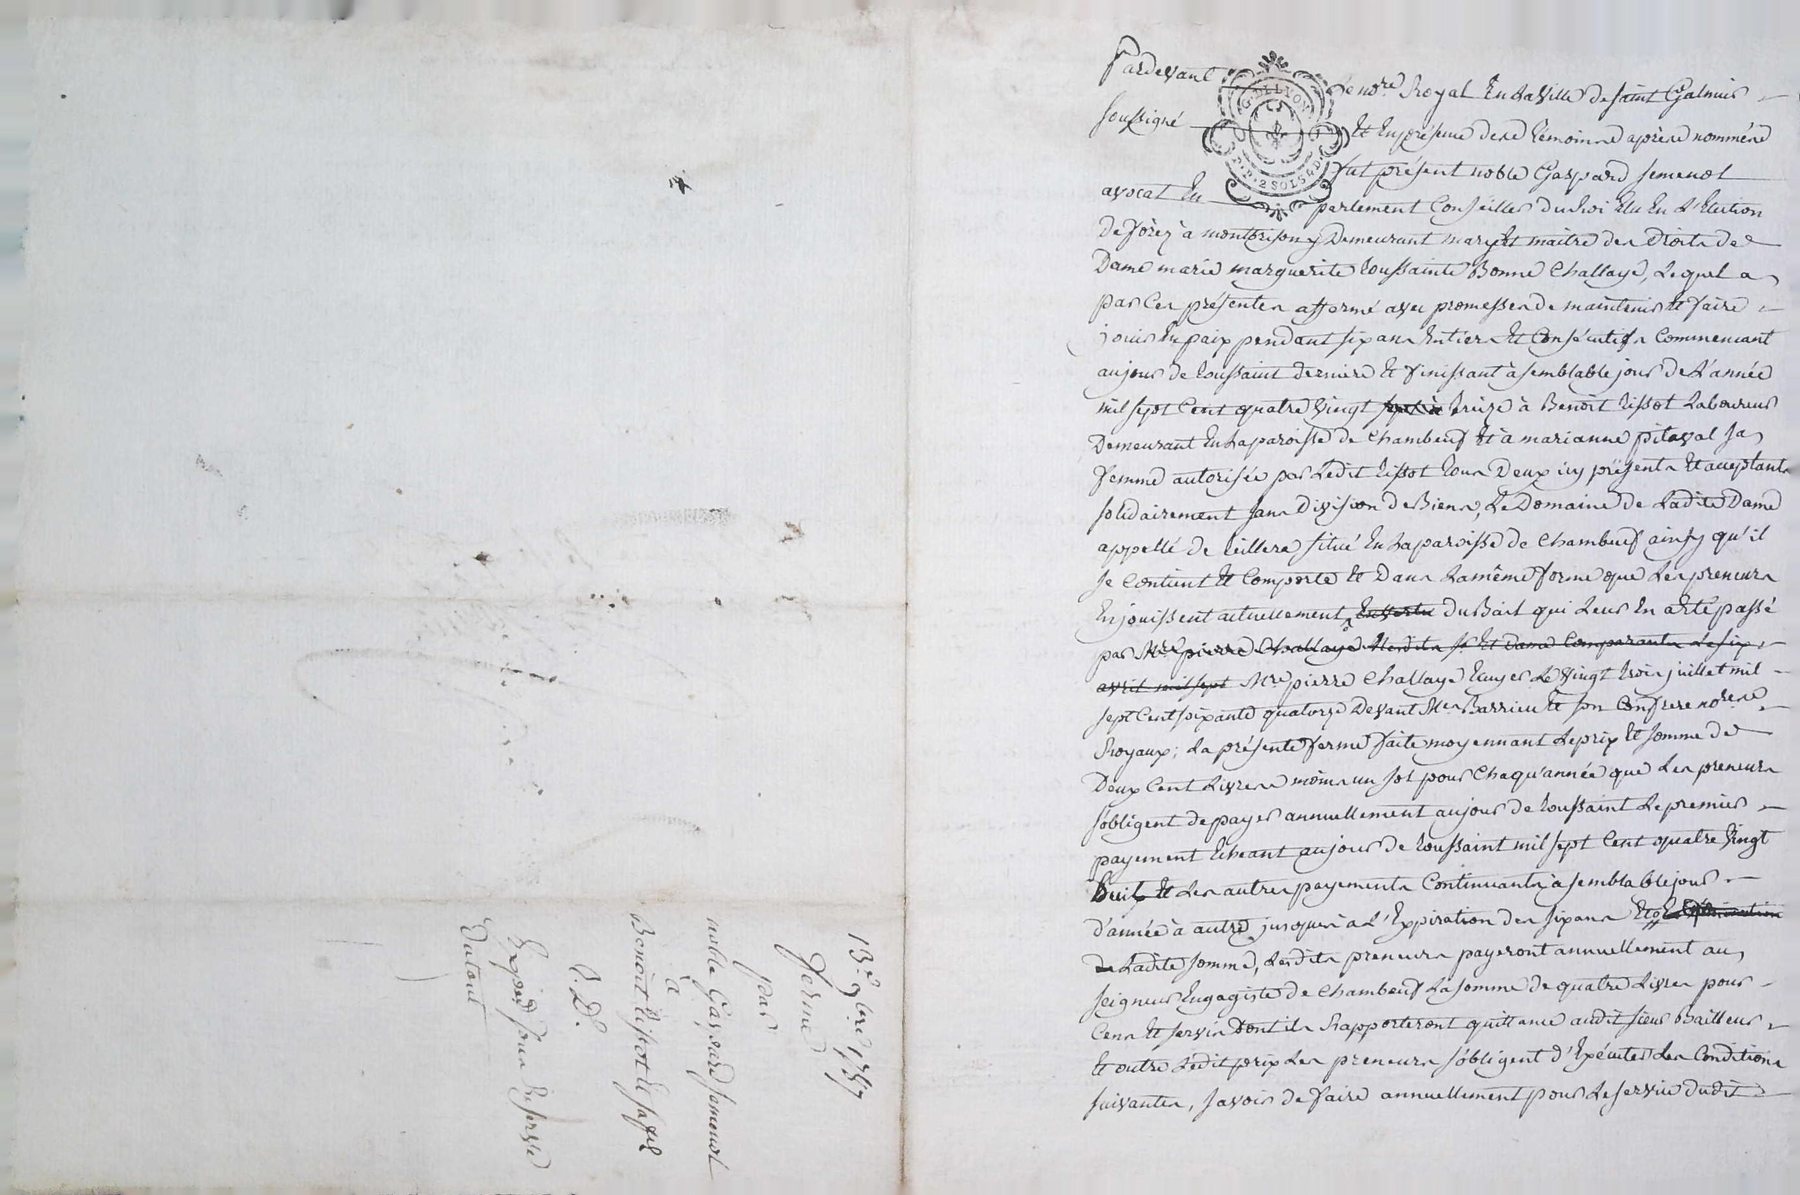 Pardevant le no.re Royal En La Ville de saint Galmier
soussigné Et En présence des témoins après nommés
fut présent noble Gaspard semenol
avocat En parlement Conseiller du Roi Elu En L'Election
de forez à montbrison y Demeurant mary Et maitre des Droits de
Dame marie marguerite toussainte Bonne Challaye, Lequel a
par Ces présentes affermé avec promesses de maintenir Et faire
jouir En paix pendant six ans Entiers Et Consécutifs Commencant
au jour de toussaint derniere Et finissant à semblable jour de L'année
mil sept Cent quatre vingt treize à Benoit tissot Laboureur
Demeurant En La paroisse de Chambeuf Et à marianne pitaval sa
femme autorisée par Ledit tissot tous Deux icy présents Et acceptants
solidairement sans Division de Biens, Le Domaine de Ladite Dame
appellé de situé En La paroisse de Chambeuf ainsy qu'il
se Contient Et Comporte Et Dans La même forme que Les preneurs
En jouissent actuellement En vertu du Bail qui Leur En a Eté passé
par Mre pierre Challaye Lesdits sr Et Dame Comparants Le six
avril mil sept Mre pierre Challaye Ecuyer Le vingt trois juillet mil
sept Cent soixante quatorze Devant Mes Barrieu Et son Confrere no.res
Royaux; La présente ferme faite moyennant Le prix Et somme de
Deux Cent Livres moins un sol pour Chaqu'année que Les preneurs
s'obligent de payer annuellement au jour de toussaint Le premier
payement Echeant au jour de toussaint mil sept Cent quatre vingt
huit Et Les autres payements Continuants à semblable jour
d'année à autre jusques à L'Expiration des six ans
de Ladite somme, Lesdits preneurs payeront annuellement au
seigneur Engagiste de Chambeuf La somme de quatre Livres pour
Cens Et servis Dont ils Rapporteront quittance audit sieur Bailleur
Et outre Ledit prix Les preneurs s'obligent d'Exécuter Les Conditions
suivantes, savoir de faire annuellement pour Le service dudit
13e 9bre 1787
ferme
par
noble Gaspard semenol
à
Benoit tissot Et sa fe
E. D.
Expedié pour
Du tout
G. DE LYON
P. P. 2 SOLS 4 D.